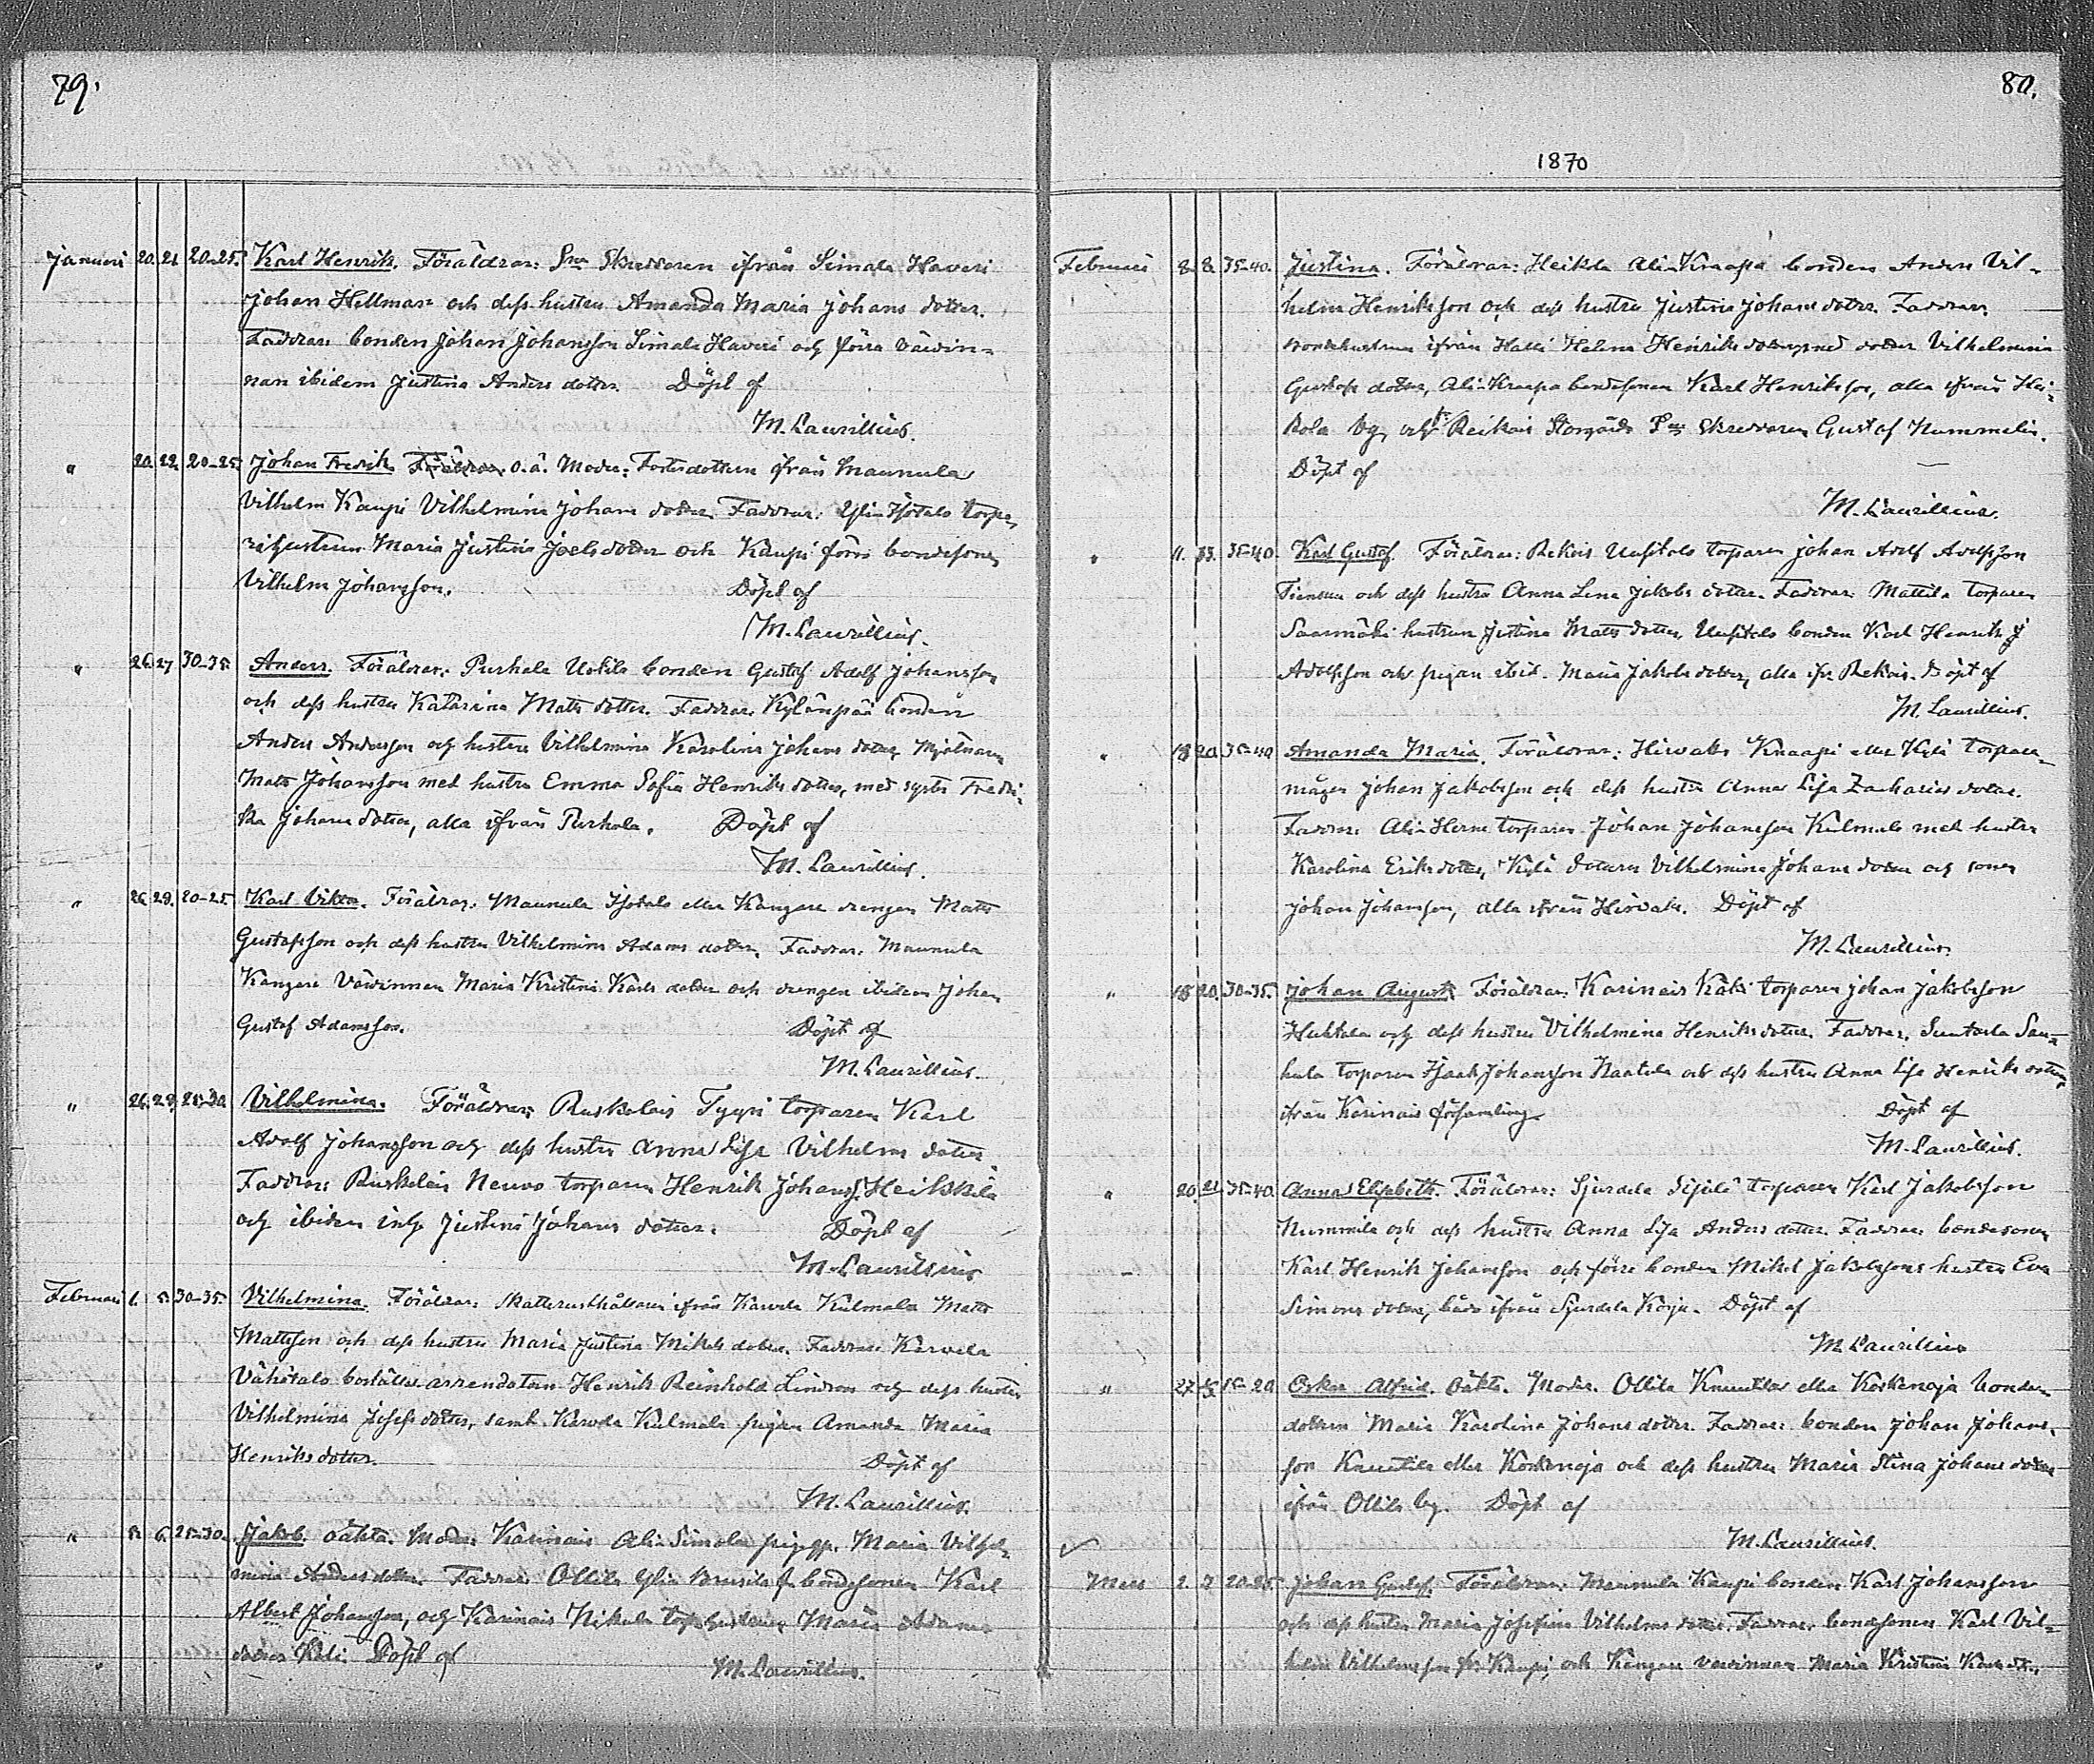 79.
Januari 20. 21. 20-25. Karl Henrik. Föräldrar: Skräddaren ifrån Simala Haveri
Johan Hellman och dess hustru Amanda Maria Johans dotter.
Faddrar: bonden Johan Johansson Simala Haveri och förra värdin-
nan ibidem Justina Anders dotter. Döpt af
M. Laurillius.
" 20. 22. 20-25. Johan Fredrik. o.ä. Moder: ifrån Maunula
Vilhelm Kaupi Vilhelmina Johans dotter. Faddrar: torpa-
Maria Justina Joels dotter och Kaupi bondesonen
Vilhelm Johansson. Döpt af
M. Laurillius.
" 26. 27. 30-35. Anders. Föräldrar: Purhala Uotila bonden Gustaf Adolf Johansson
och dess hustru Katarina Mats dotter. Faddrar: Kylänpää bonden
Anders Andersson och hustru Vilhelmina Karolina Johans dotter, Mjölnaren
Mats Johansson med hustru Emma Sofia Henriks dotter, med syster Fredri-
ka Johans dotter, alla ifrån Purhala. Döpt af
M. Laurillius.
" 26. 29. 20-25. Karl Viktor. Föräldrar: Maunula Isotalo eller Kangare drengen Mats
Gustafsson och dess hustru Vilhelmina Adams dotter. Faddrar: Maunula
Kangare Värdinnan Maria Kristina Karls dotter och drengen ibidem Johan
Gustaf Adamsson. Döpt af
M. Laurillius.
" 26. 29. 25-30. Vilhelmina. Föräldrar: Ruskolais Tyypi torparen Karl
Adolf Johansson och dess hustru Anna Lisa Vilhelms dotter.
Faddrar: Ruskolais Neuvo torparen Henrik Johanss. Heikkilä
och ibidem inh. Justina Johans dotter. Döpt af
M. Laurillius
Februari 1. 5. 30-35. Vilhelmina. Föräldrar: Skatterusthållaren ifrån Karvela Kulmala Mats
Mattsson och dess hustru Maria Justina Mikels dotter. Faddrar: Karvela
Vähätalo boställs arrendatorn Henrik Reinhold Lindroos och dess hustru
Vilhelmina Josefs dotter, samt Karvela Kulmala pigan Amanda Maria
Henriks dotter. Döpt af
M. Laurillius.
" 5. 6. 25-30. Jakob oäkta. Moder: Karinais Ali-Simola Maria Vilhel-
mina Anders dotter. Faddrar: Ollila Yli bondesonen Karl
Albert Johansson, och Karinais Nikula Maria Adams
dotter Döpt af
M. Laurillius.
80.
1870
Februari 8. 8. 35-40. Justina. Föräldrar: Heikola Ali-Knaapi bonden Anders Vil-
helm Henriksson och dess hustru Justina Johans dotter. Faddrar:
ifrån Halli Helena Henriks dotter med dotter Vilhelmina
Gustafs dotter, Ali-Knaapi bondesonen Karl Henriksson, alla ifrån Hei-
kola by, och Reikois Storgård Skreddaren Gustaf Nummelin.
Döpt af
M. Laurillius.
" 11. 13. 35-40. Karl Gustaf. Föräldrar: Rekois Uusitalo torparen Johan Adolf Adolfsson
och dess hustru Anna Lena Jakobs dotter. Faddrar: Mattila torparen
Saarimäki hustrun Justina Mats dotter, Uusitalo bonden Karl Henrik
Adolfsson och pigan ibid. Maria Jakobs dotter, alla ifr. Rekois. Döpt af
M. Laurillius.
" 18 20. 35-40 Amanda Maria. Föräldrar: Hirvaks Knaapi eller Kylä torpare-
mågen Johan Jakobsson och dess hustru Anna Lisa Zacharias dotter.
Faddrar: Ali-Herne torparen Johan Johansson Kulmala med hustru
Karolina Eriks dotter, Kylä dottren Vilhelmina Johans dotter och sonen
Johan Johansson, alla ifrån Hirvaks. Döpt af
M. Laurillius.
" 18 20. 30-35. Johan August. Föräldrar: Karinais Käki torparen Johan Jakobsson
Huhtala och dess hustru Vilhelmina Henriks dotter. Faddrar: Suntarla Sau-
hula torparen Isaak Johansson Naatula och dess hustru Anna Lisa Henriks dotter,
ifrån Karinais församling. Döpt af
M. Laurillius.
" 20. 21. 35-40. Anna Elisabeth. Föräldrar: Sjurdala Sipilä torparen Karl Jakobsson
Nummila och dess hustru Anna Lisa Anders dotter. Faddrar: bondesonen
Karl Henrik Johansson och förre bonden Mikel Jakobssons hustru Eva
Simons dotter, båda ifrån Sjurdala Korja. Döpt af
M. Laurillius
" 27. 15-20 Oskar Alfrid. Oäkta. Moder: Ollila Knuutila eller Koskenoja bonde-
dottern Maria Karolina Johans dotter. Faddrar: bonden Johan Johans-
son Knuutila eller Koskenoja och dess hustru Maria Stina Johans dotter
ifrån Ollila by. Döpt af
M. Laurillius.
Mars 2. 3 20-25. Johan Gustaf. Föräldrar: Maunula Kaupi bonden Karl Johansson
och dess hustru Maria Josefina Vilhelms dotter. Faddrar: bondesonen Karl Vil-
helm Vilhelmsson fr. Kaupi, och Kangare värdinnan Maria Kristina Karls dr.